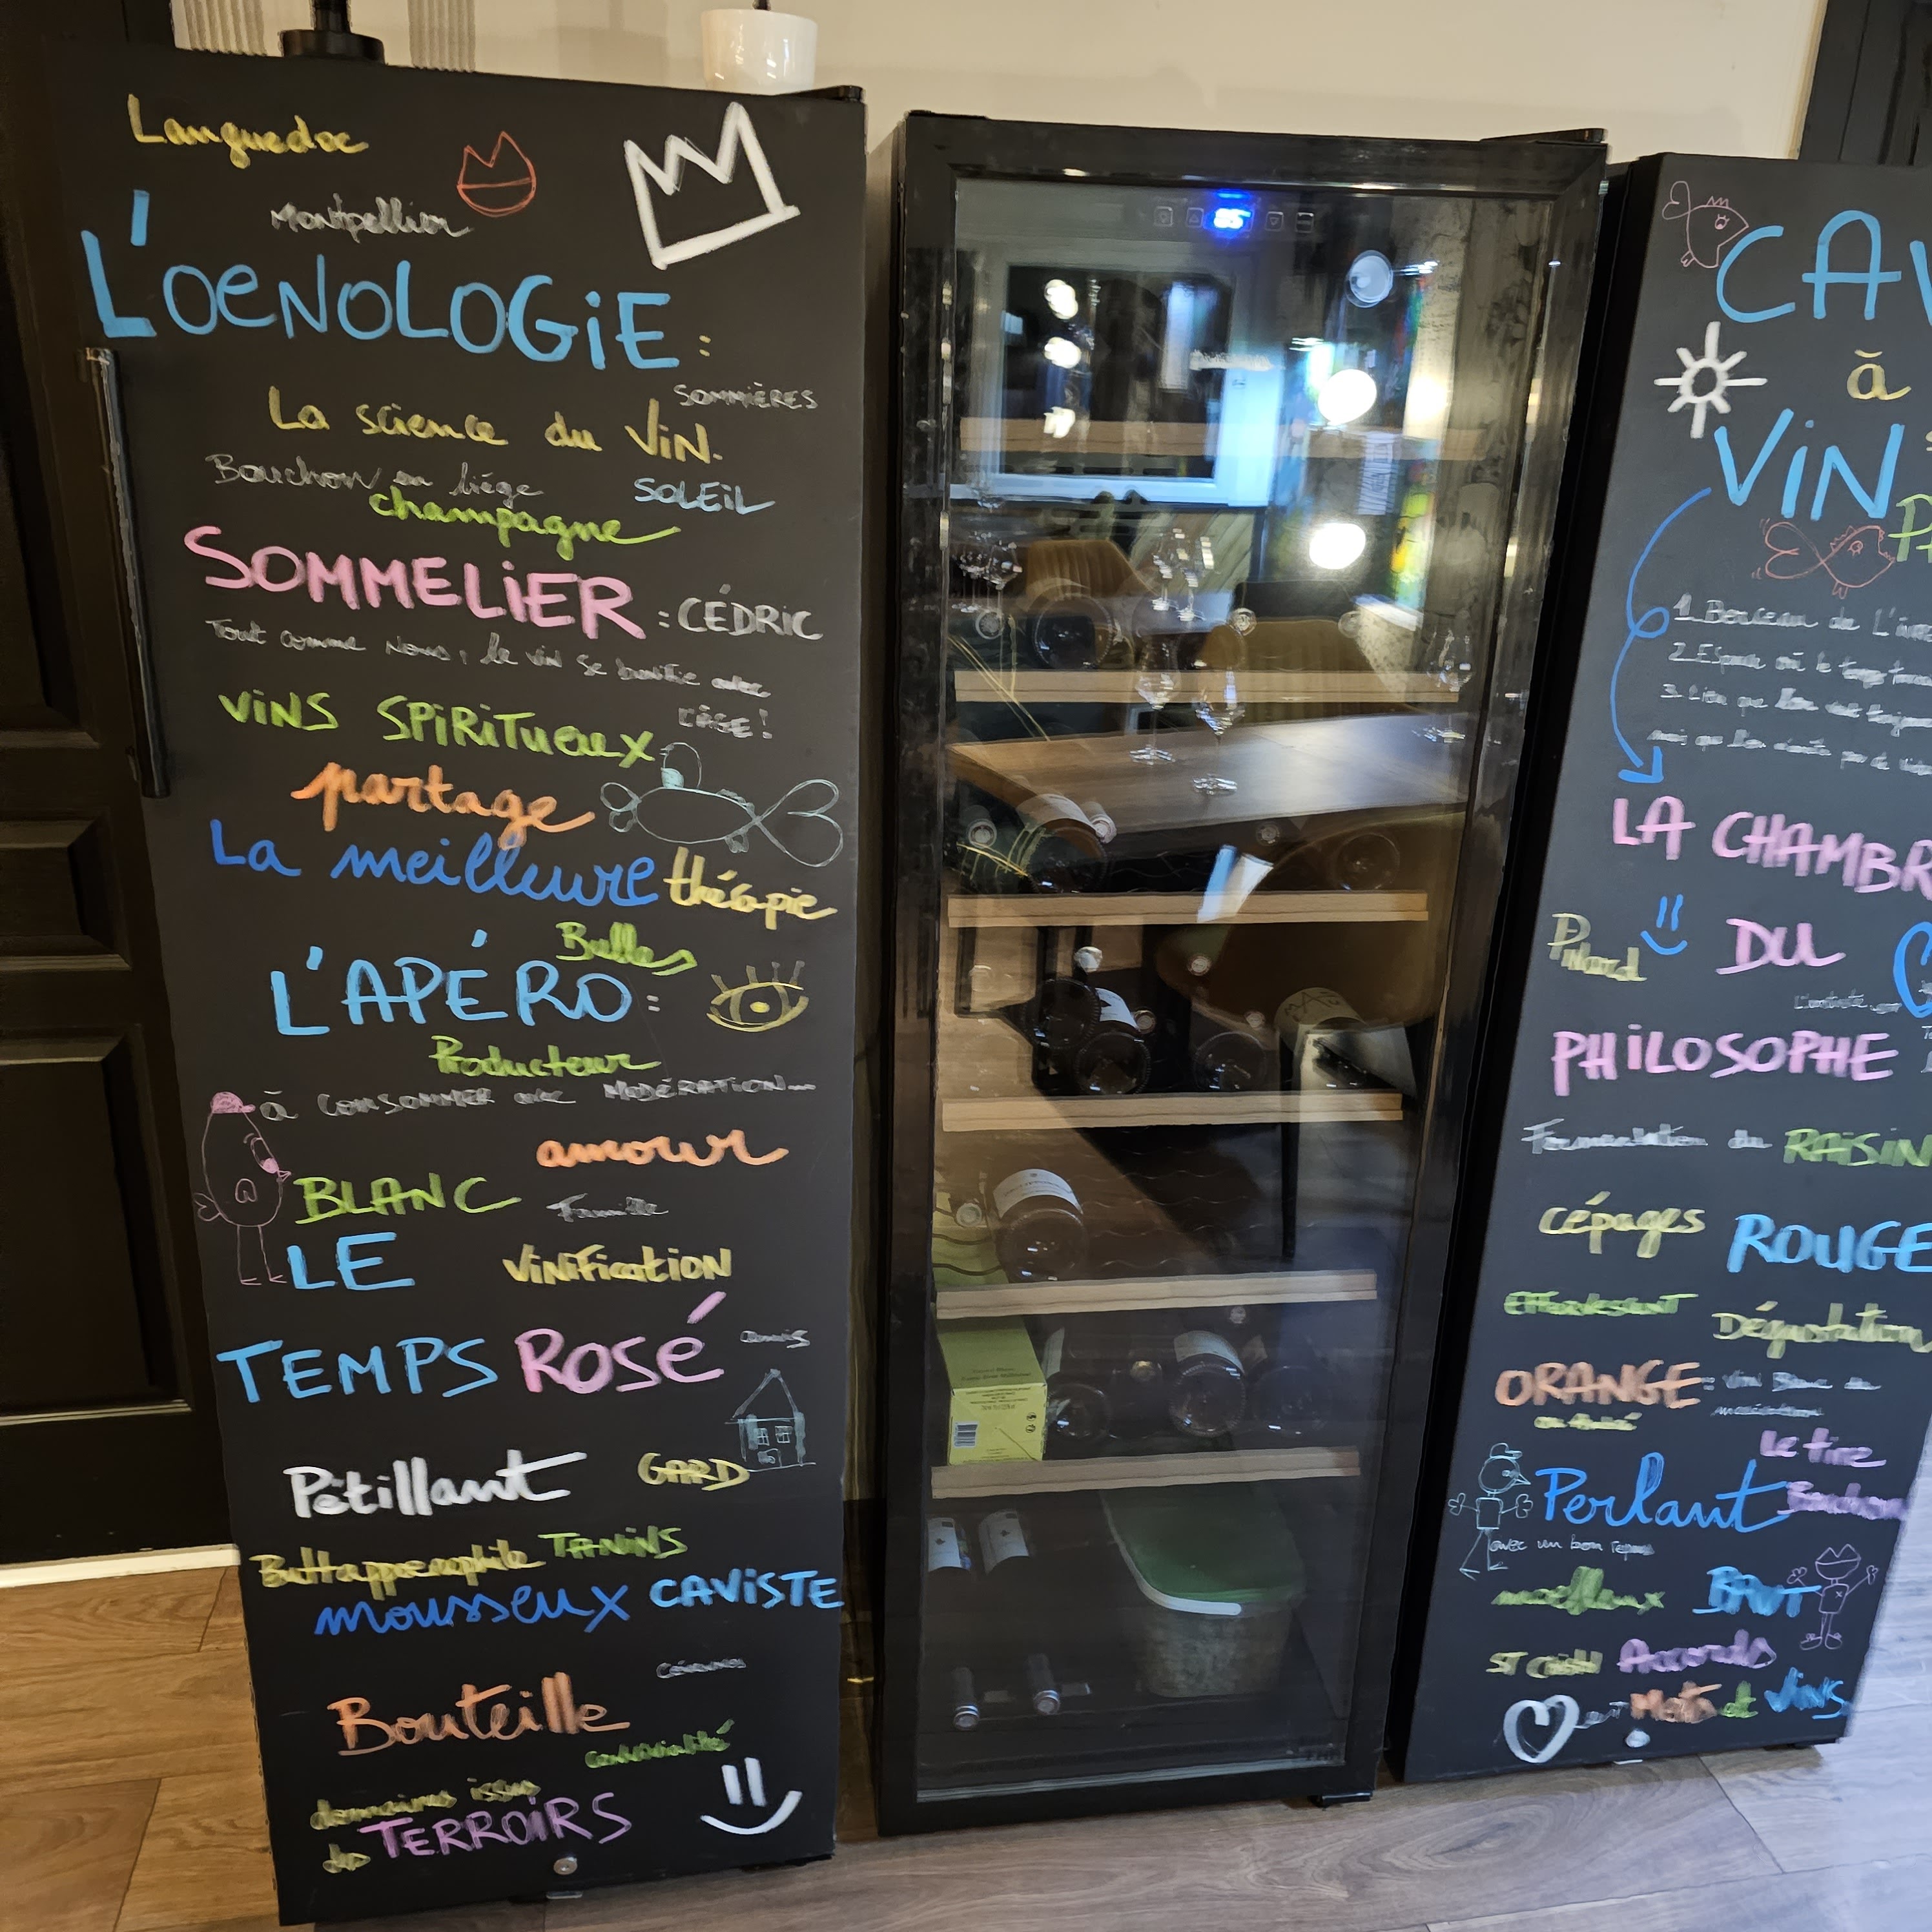 Languedoc
Montpellier
L'OENOLOGIE :
SOMMIÈRES
La science du VIN.
Bouchon en liège
SOLEIL
champagne
SOMMELIER : CÉDRIC
Tout comme nous, le vin se bonifie avec
L'ÂGE !
VINS SPIRITUEUX
partage
La meilleure thérapie
Bulles
L'APÉRO :
Producteur
à CONSOMMER avec MODÉRATION...
amour
BLANC
Famille
LE
VINIFICATION
TEMPS ROSÉ
Pétillant
GARD
TANINS
mousseux CAVISTE
Cévennes
Bouteille
convivialité
domaines issus
des TERROIRS
CAV
à
VIN
1. Berceau de L'
2. Espace où le temps
3. Lieu que l'on
mais que l'on
LA CHAMBR
Pinard
DU
PHILOSOPHE
Fermentation du RAISIN
cépages ROUGE
EFFERVESCENT
Dégustation
ORANGE : Vin Blanc de
macération
Le tire
Bouchon
Perlant
avec un bon repas
moelleux BRUT
Accords
Mets et VINS